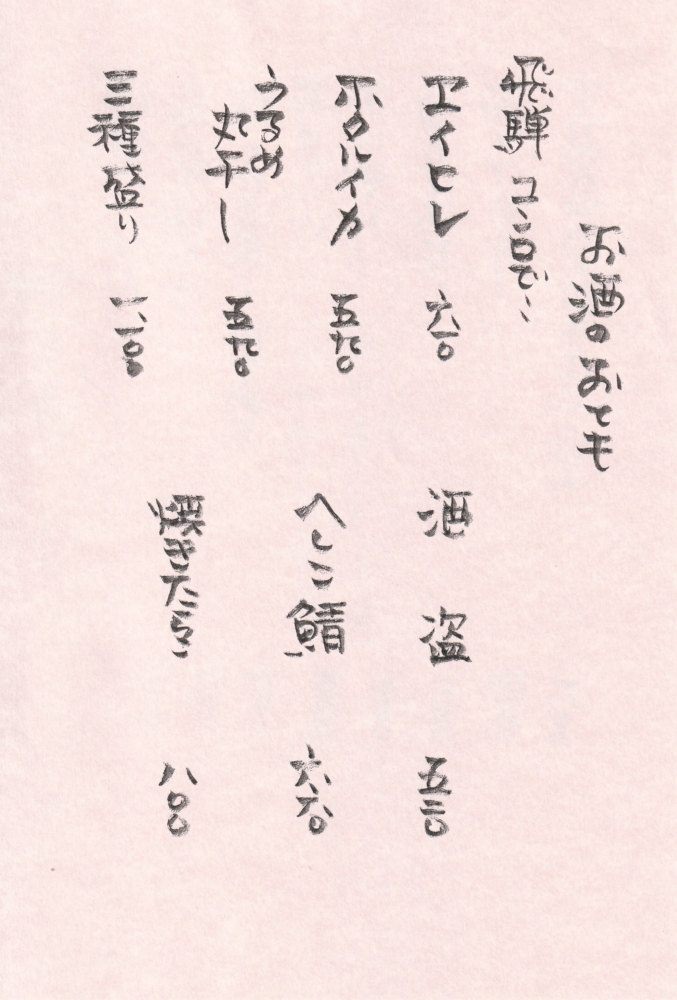 お酒のおとも
飛騨コンロで…
エイヒレ 六一〇
ホタルイカ 五九〇
うるめ
丸干し 五九〇
三種盛り 一、一〇〇
酒盗 五二〇
へしこ鯖 六六〇
焼きたらこ 八〇〇